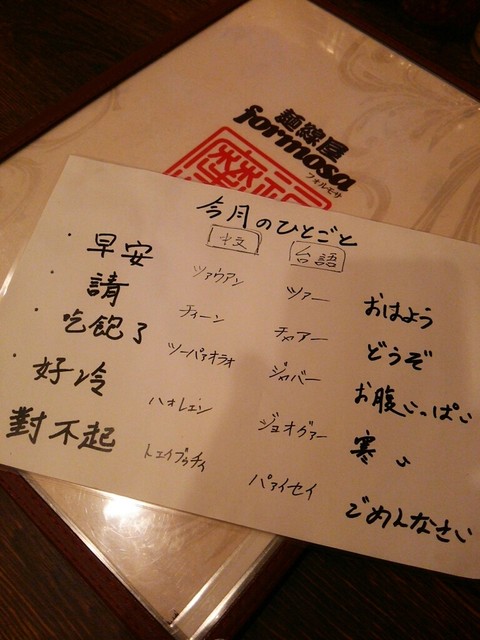 麺線屋
formosa
フォルモサ
今月のひとごと
中文 台語
・早安 ツァウアン ツァー おはよう
・請 チィーン チャアー どうぞ
・吃飽了 ツーパァオラオ ジャバー お腹いっぱい
・好冷 ハオレェン ジョオグァー 寒い
對不起 トェイブゥチィ パァイセイ ごめんなさい